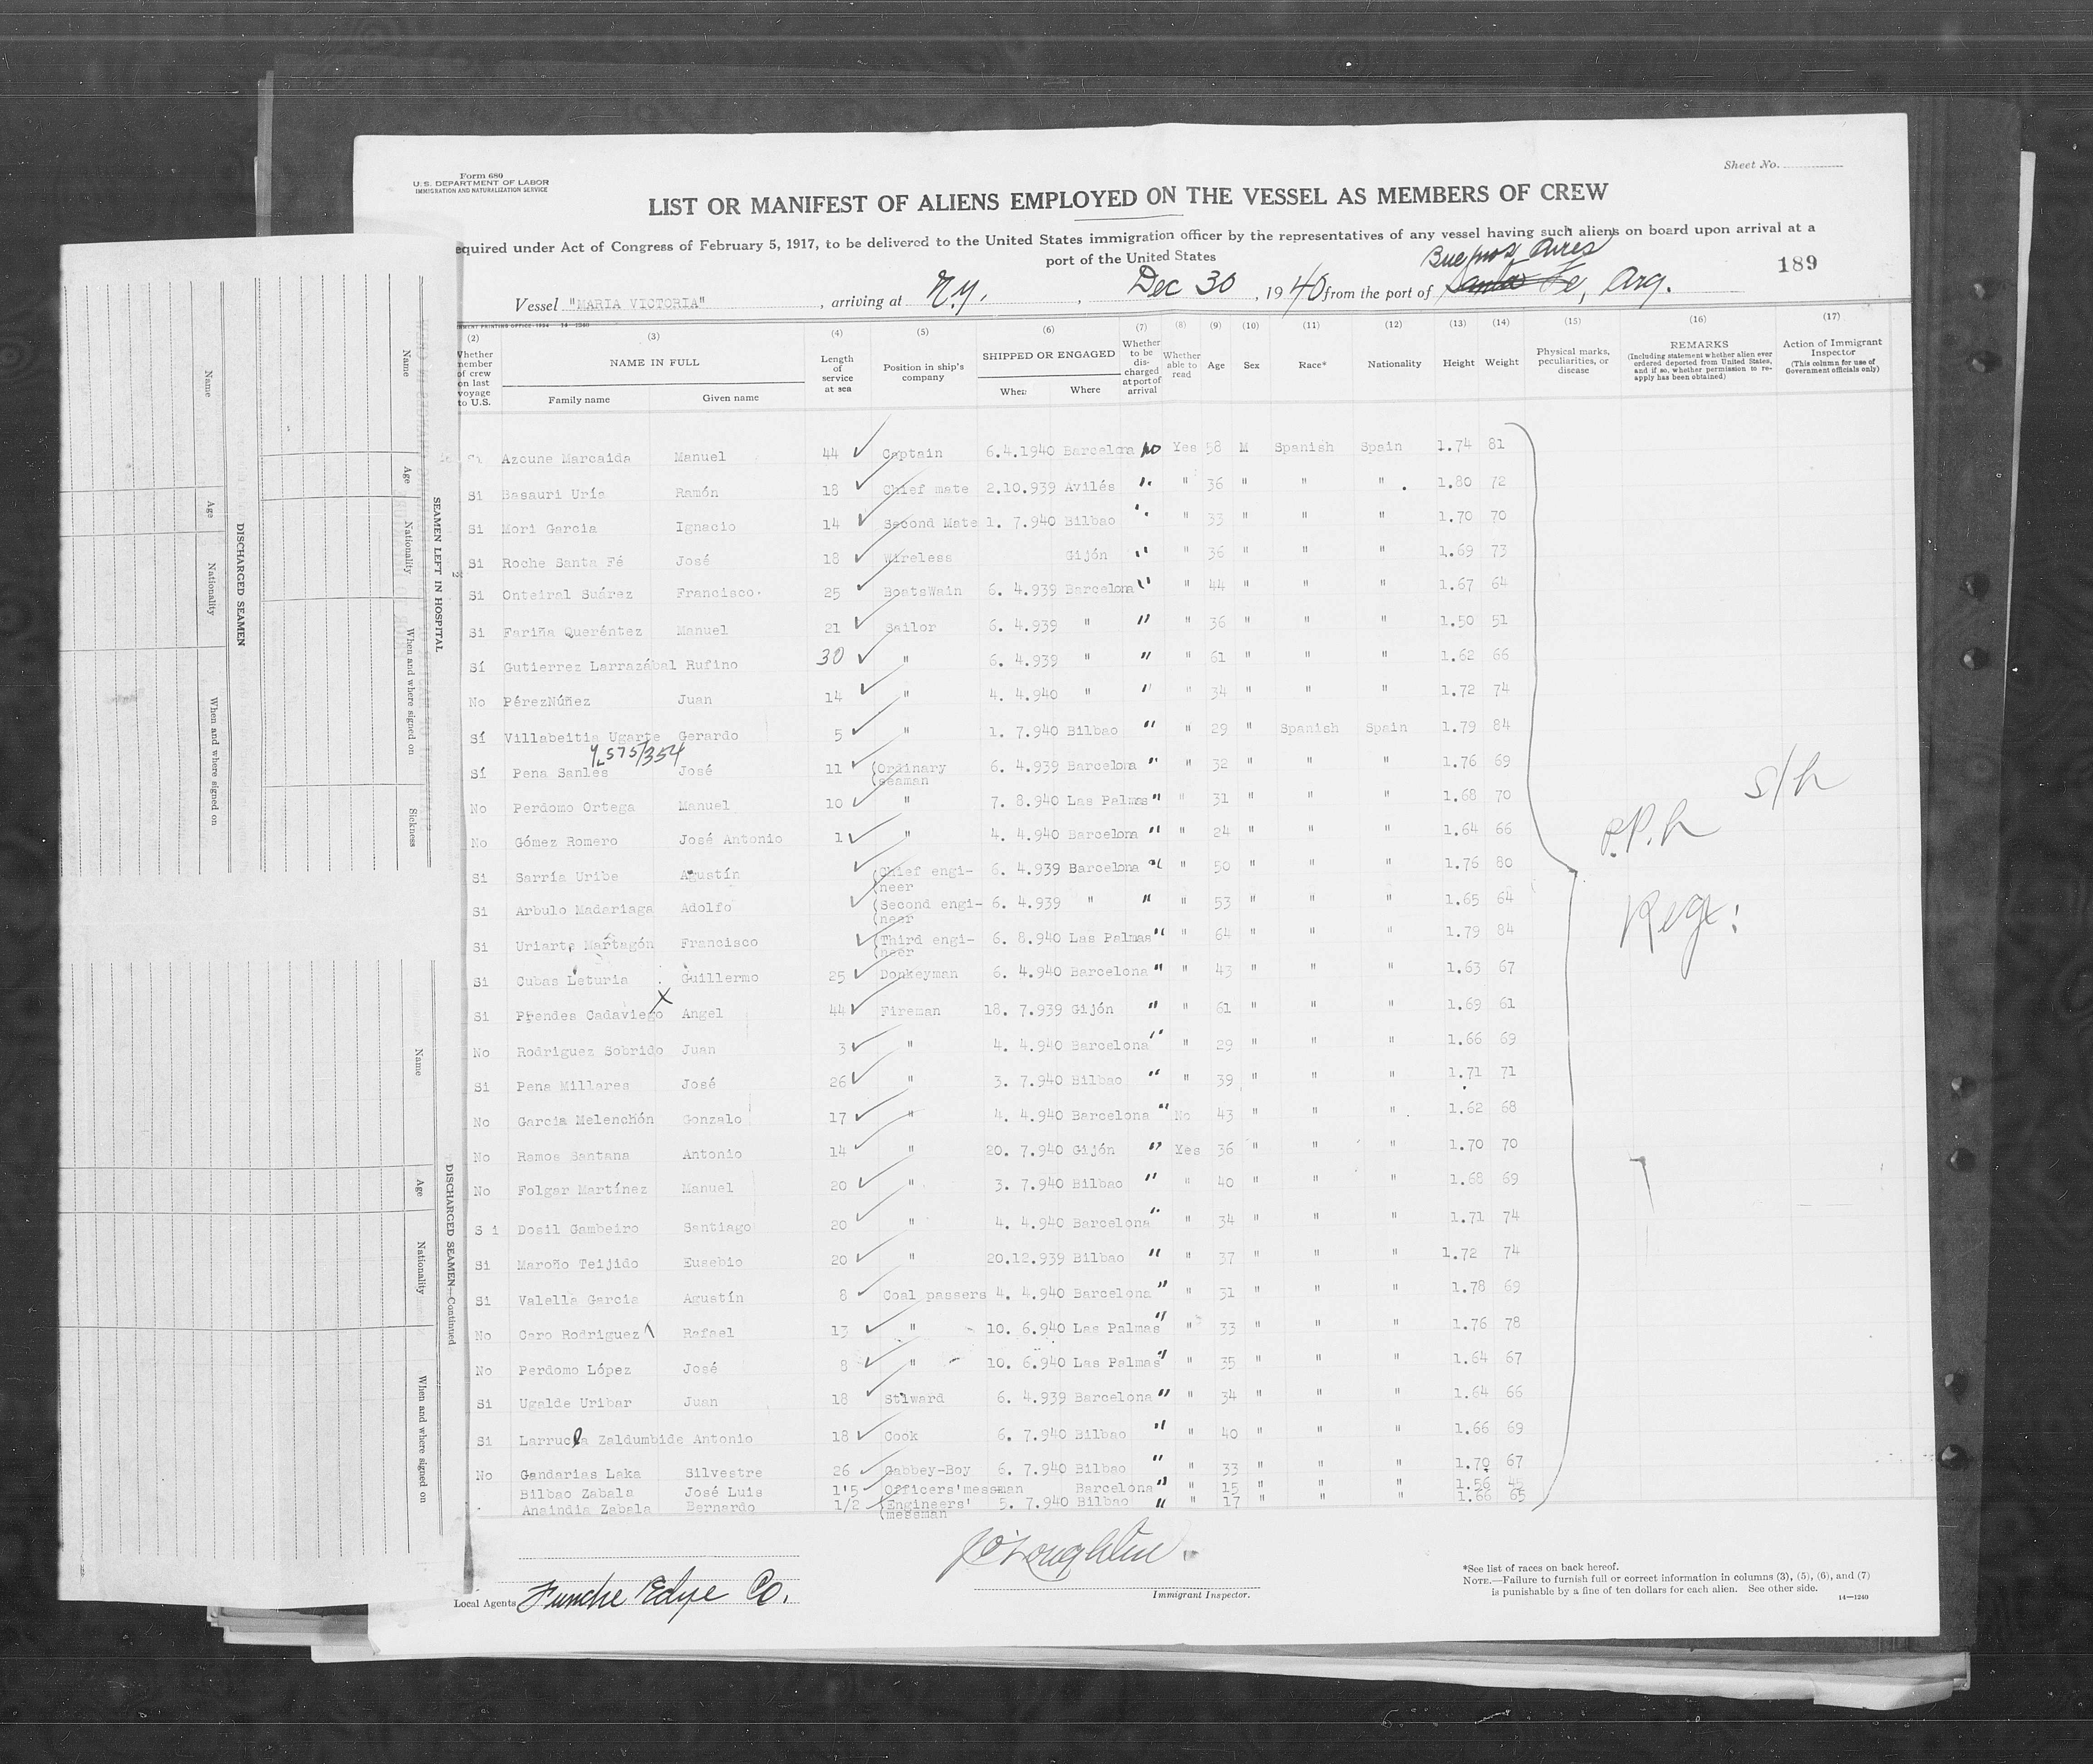 Form 680
U.S. DEPARTMENT OF LABOR
IMMIGRATION AND NATURALIZATION SERVICE
Sheet No.
LIST OR MANIFEST OF ALIENS EMPLOYED ON THE VESSEL AS MEMBERS OF CREW
equired under Act of Congress of February 5, 1917, to be delivered to the United States immigration officer by the representatives of any vessel having such aliens on board upon arrival at a
port of the United States
Buenos Aires
189
Vessel "MARIA VICTORIA", arriving at N.Y., Dec 30, 1940 from the port of Santa Fe, Arg.
(2) (3) (4) (5) (6) (7) (8) (9) (10) (11) (12) (13) (14) (15) (16) (17)
Whether member of crew on last voyage to U.S. NAME IN FULL Family name Given name Length of service at sea Position in ship's company SHIPPED OR ENGAGED When Where Whether to be discharged at port of arrival Whether able to read Age Sex Race* Nationality Height Weight Physical marks, peculiarities, or disease REMARKS (Including statement whether alien ever ordered deported from United States, and if so, whether permission to re-apply has been obtained) Action of Immigrant Inspector (This column for use of Government officials only)
Si Azcune Marcaida Manuel 44 Captain 6.4.1940 Barcelona no Yes 58 M Spanish Spain 1.74 81
Si Basauri Urís Ramón 18 Chief mate 2.10.939 Avilés " " 36 " " " 1.80 72
Si Mori Garcia Ignacio 14 Second Mate 1. 7.940 Bilbao " " 33 " " " 1.70 70
Si Roche Santa Fé José 18 Wireless Gijón " " 36 " " " 1.69 73
Si Onteiral Suárez Francisco. 25 BoatsWain 6. 4.939 Barcelona " " 44 " " " 1.67 64
Si Fariña Queréntez Manuel 21 Sailor 6. 4.939 " " " 36 " " " 1.50 51
Sí Gutierrez Larrazábal Rufino 30 " 6. 4.939 " " " 61 " " " 1.62 66
No PérezNúñez Juan 14 " 4. 4.940 " " " 34 " " " 1.72 74
Sí Villabeitia Ugarte Gerardo 5 " 1. 7.940 Bilbao " " 29 " Spanish Spain 1.79 84
575/354
Sí Pena Sanles José 11 (Ordinary (seaman 6. 4.939 Barcelona " " 32 " " " 1.76 69
No Perdomo Ortega Manuel 10 " 7. 8.940 Las Palmas " " 31 " " " 1.68 70
No Gómez Romero José Antonio 1 " 4. 4.940 Barcelona " " 24 " " " 1.64 66
Si Sarría Uribe Agustín (Chief engi- (neer 6. 4.939 Barcelona " " 50 " " " 1.76 80
Si Arbulo Madariaga Adolfo (Second engi- (neer 6. 4.939 " " " 53 " " " 1.65 64
Si Uriarte Martagón Francisco (Third engi- (neer 6. 8.940 Las Palmas " " 64 " " " 1.79 84
Si Cubas Leturia Guillermo 25 Donkeyman 6. 4.940 Barcelona " " 43 " " " 1.63 67
Si Prendes Cadaviego X Angel 44 Fireman 18. 7.939 Gijón " " 61 " " " 1.69 61
No Rodriguez Sobrido Juan 3 " 4. 4.940 Barcelona " " 29 " " " 1.66 69
Si Pena Millares José 26 " 3. 7.940 Bilbao " " 39 " " " 1.71 71
No Garcia Melenchón Gonzalo 17 " 4. 4.940 Barcelona " No 43 " " " 1.62 68
No Ramos Santana Antonio 14 " 20. 7.940 Gijón " Yes 36 " " " 1.70 70
No Folgar Martínez Manuel 20 " 3. 7.940 Bilbao " " 40 " " " 1.68 69
S i Dosil Gambeiro Santiago 20 " 4. 4.940 Barcelona " " 34 " " " 1.71 74
Si Maroño Teijido Eusebio 20 " 20.12.939 Bilbao " " 37 " " " 1.72 74
Si Valella Garcia Agustín 8 Coal passers 4. 4.940 Barcelona " " 31 " " " 1.78 69
No Caro Rodriguez Rafael 13 " 10. 6.940 Las Palmas " " 33 " " " 1.76 78
No Perdomo López José 8 " 10. 6.940 Las Palmas " " 35 " " " 1.64 67
Si Ugalde Uribar Juan 18 Stiward 6. 4.939 Barcelona " " 34 " " " 1.64 66
Si Larrucla Zaldumbide Antonio 18 Cook 6. 7.940 Bilbao " " 40 " " " 1.66 69
No Gandarias Laka Silvestre 26 Gabbey-Boy 6. 7.940 Bilbao " " 33 " " " 1.70 67
Bilbao Zabala José Luis 1'5 Officers'messman Barcelona " " 15 " " " 1.56 45
Anaindia Zabala Bernardo 1/2 (Engineers' (messman 5. 7.940 Bilbao " " 17 " " " 1.66 65
s/h
P.P.h
Regx:
Local Agents Funche Edye Co.
J O'Loughlin
Immigrant Inspector.
*See list of races on back hereof.
NOTE.—Failure to furnish full or correct information in columns (3), (5), (6), and (7)
is punishable by a fine of ten dollars for each alien. See other side.
14—1240
SEAMEN LEFT IN HOSPITAL
Name Age Nationality When and where signed on Sickness
DISCHARGED SEAMEN
Name Age Nationality When and where signed on
DISCHARGED SEAMEN—Continued
Name Age Nationality When and where signed on